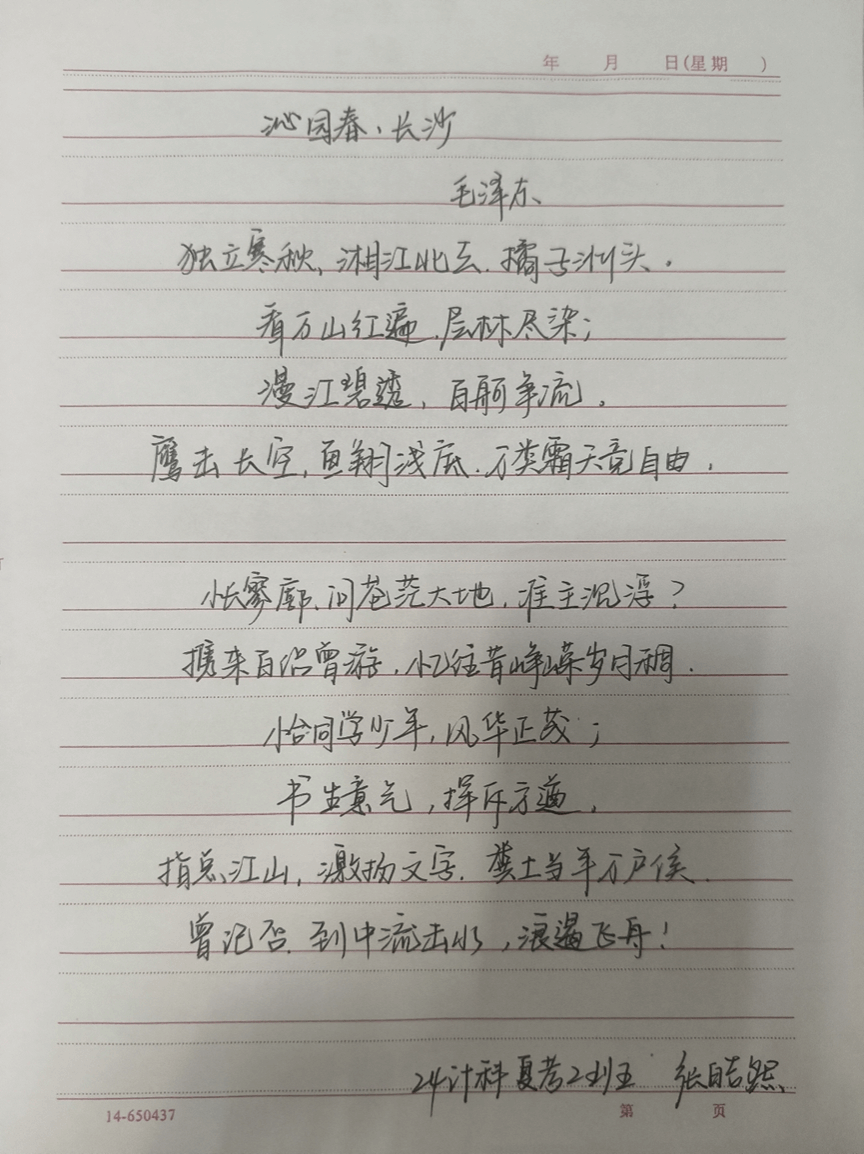 年 月 日(星期 )
沁园春、长沙
毛泽东、
独立寒秋,湘江北去.橘子洲头.
看万山红遍.层林尽染;
漫江碧透,百舸争流.
鹰击长空,鱼翔浅底.万类霜天竞自由.
怅寥廓.问苍茫大地,谁主沉浮?
携来百侣曾游.忆往昔峥嵘岁月稠.
恰同学少年,风华正茂;
书生意气,挥斥方遒.
指点江山,激扬文字.粪土当年万户侯.
曾记否.到中流击水,浪遏飞舟!
24计科夏考2班 张皓然
14-650437
第 页